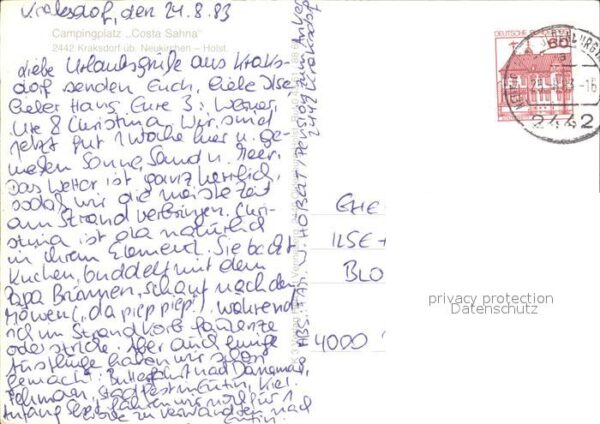 Kraksdorf, den 24.8.83
Campingplatz „Costa Sahna"
2442 Kraksdorf üb. Neukirchen - Holst.
Liebe Urlaubsgrüße aus Kraks-
dorf senden Euch, liebe Ilse,
lieber Hans, Eure 3: Werner,
Ute & Christina. Wir sind
jetzt gut 1 Woche hier u. ge-
nießen Sonne, Sand u. Meer.
Das Wetter ist ganz herrlich,
sodaß wir die meiste Zeit
am Strand verbringen. Chri-
stina ist da natürlich
in ihrem Element. Sie backt
Kuchen, buddelt mit dem
Papa Brunnen, schaut nach den
Möwen (da piep piep!), während
ich im Strandkorb faulenze
oder stricke. Aber auch einige
Ausflüge haben wir schon
gemacht: Butterfahrt nach Dänemark,
Fehmarn, Stadtfest in Eutin, Kiel.
Anfang Sept. fahren wir noch für 1
Woche zu Verwandten nach
Eutin.
ABS. FAM. W.
Pension zum Anker
2442 Kraksdorf
DEUTSCHE BUNDESPOST
60
2442
EHE
ILSE +
BLO
4000
privacy protection
Datenschutz